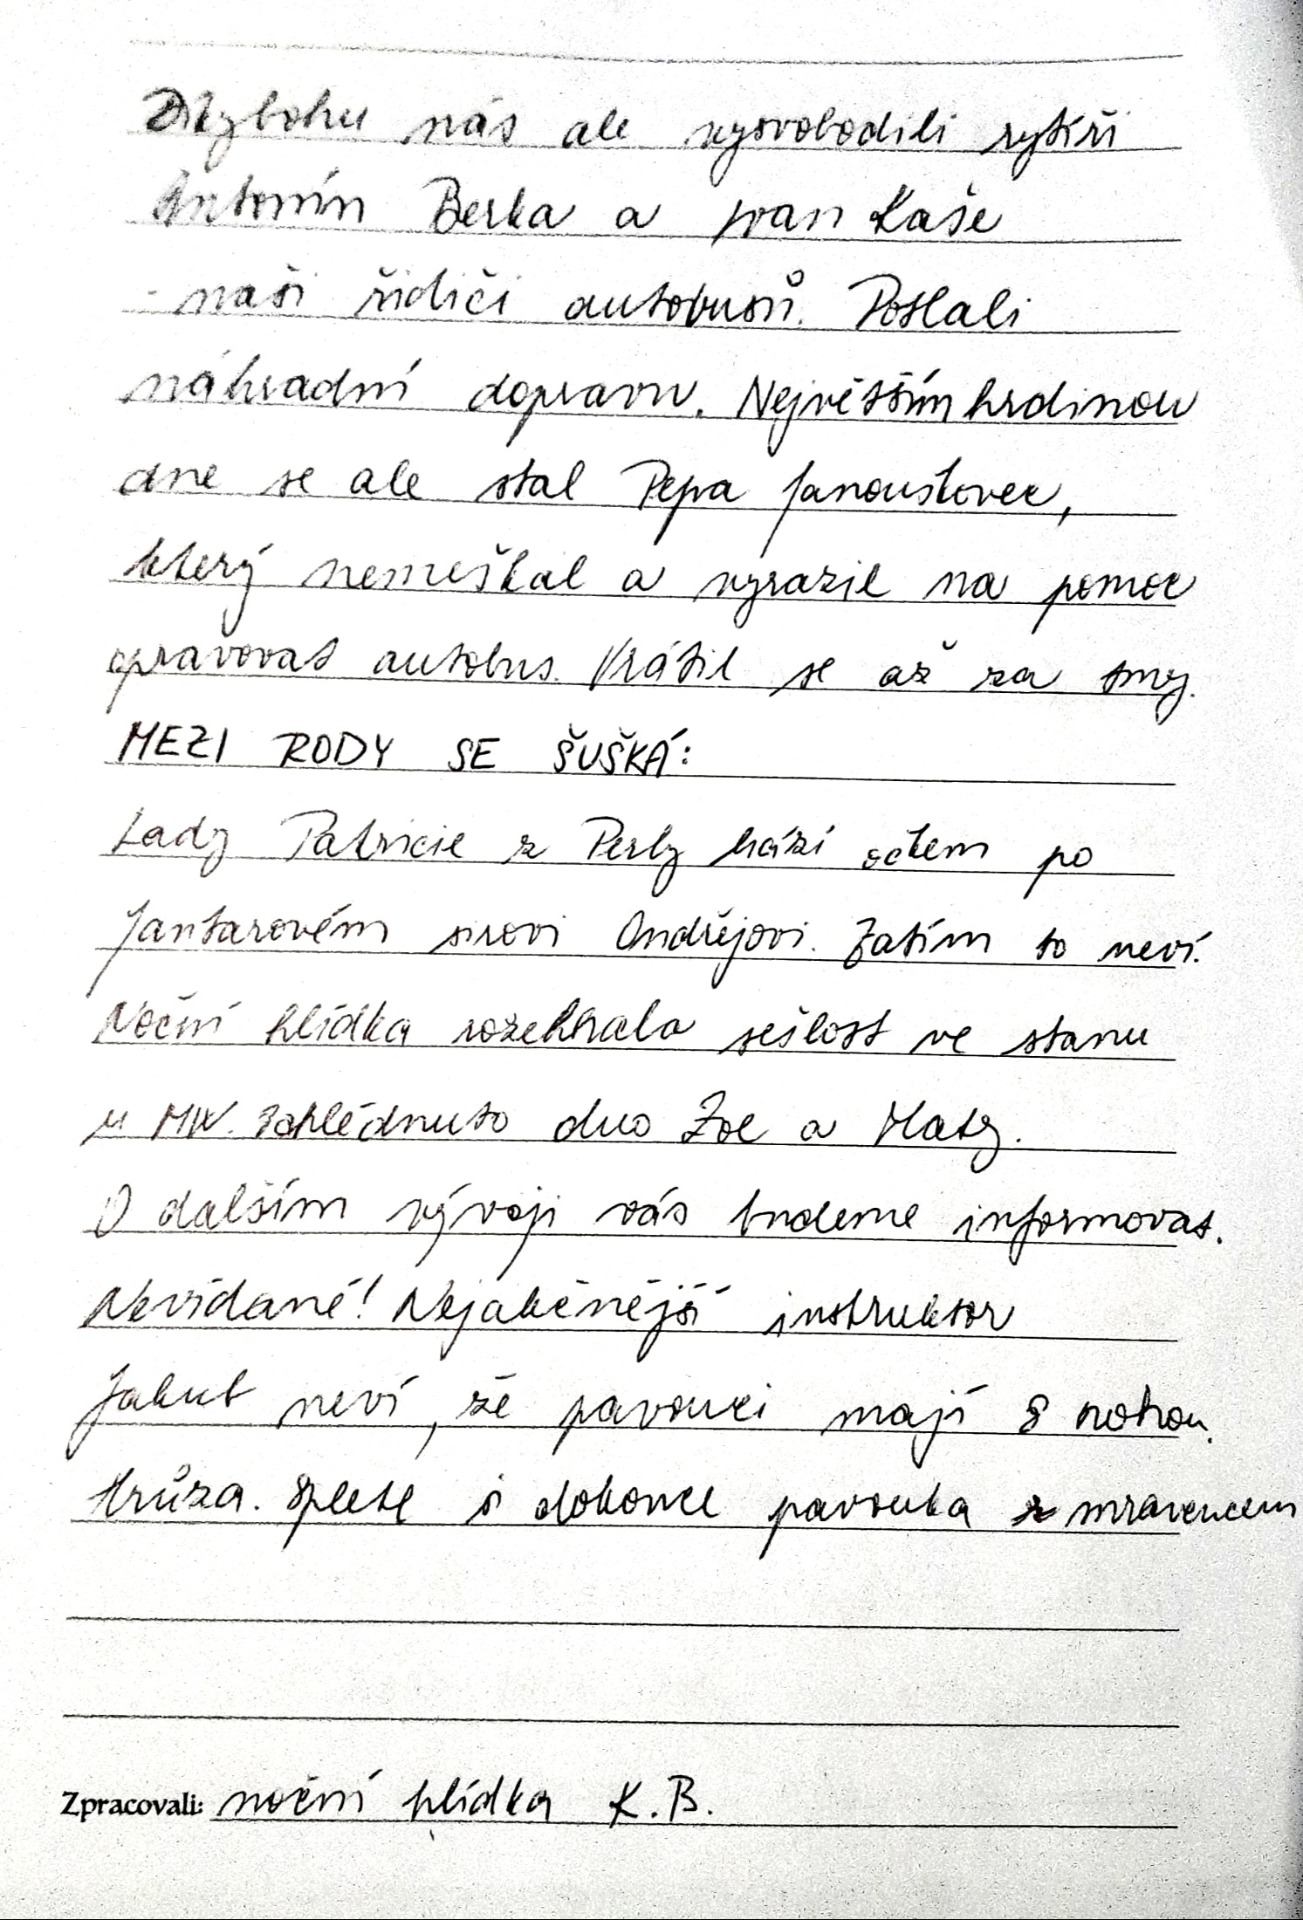 Díkybohu nás ale vysvobodili rytíři
Antonín Berka a Ivan Kaše
- naši řidiči autobusů. Poslali
náhradní dopravu. Největším hrdinou
dne se ale stal Pepa Janoušovec,
který nemeškal a vyrazil na pomoc
opravovat autobus. Vrátil se až za tmy.
MEZI RODY SE ŠUŠKÁ:
Lady Patricie z Perly hází očkem po
Jantarovém sirovi Ondřejovi. Zatím to neví.
Noční hlídka rozehnala sešlost ve stanu
u MW. Zahlédnuto duo Zoe a Maty.
O dalším vývoji vás budeme informovat.
Nevídané! Nejakčnější instruktor
Jakub neví, že pavouci mají 8 nohou.
Hrůza. Splete si dokonce pavouka z mravencem
Zpracovali: noční hlídka K.B.